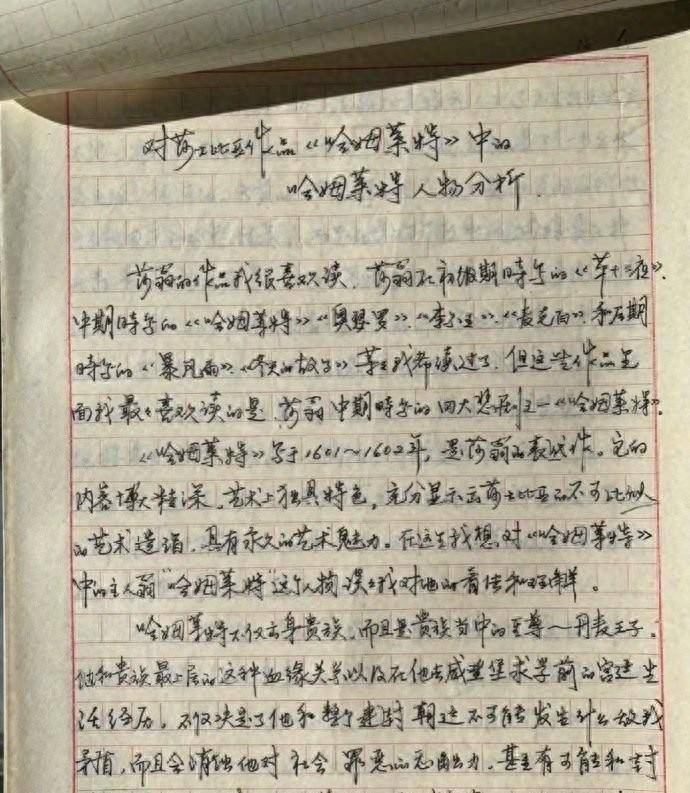 对莎士比亚作品《哈姆莱特》中的
哈姆莱特人物分析.
莎翁的作品我很喜欢读.莎翁在初级期时写的《第十二夜》.
中期时写的《哈姆莱特》《奥瑟罗》.《李尔王》.《麦克白》.和后期
时写的《暴风雨》.《冬天的故事》等等我都读过了.但这些作品里
面我最最喜欢读的是.莎翁中期时写的四大悲剧之一《哈姆莱特》.
《哈姆莱特》写于1601～1602年,是莎翁的表代作。它的
内容博大精深.艺术上独具特色,充分显示出莎士比亚的不可比似
的艺术造诣.具有永久的艺术魅力。在这里我想对《哈姆莱特》
中的主人翁“哈姆莱特”这个人物谈谈我对他的看法和理解。
哈姆莱特不仅出身贵族.而且是贵族当中的至尊～丹麦王子.
他和贵族最上层的这种血缘关系以及在他去威登堡求学前的宫廷生
活经历,不仅决定了他和整个封建朝廷不可能发生什么敌我
矛盾,而且会消蚀他对社会罪恶的洞察力.甚至有可能和封